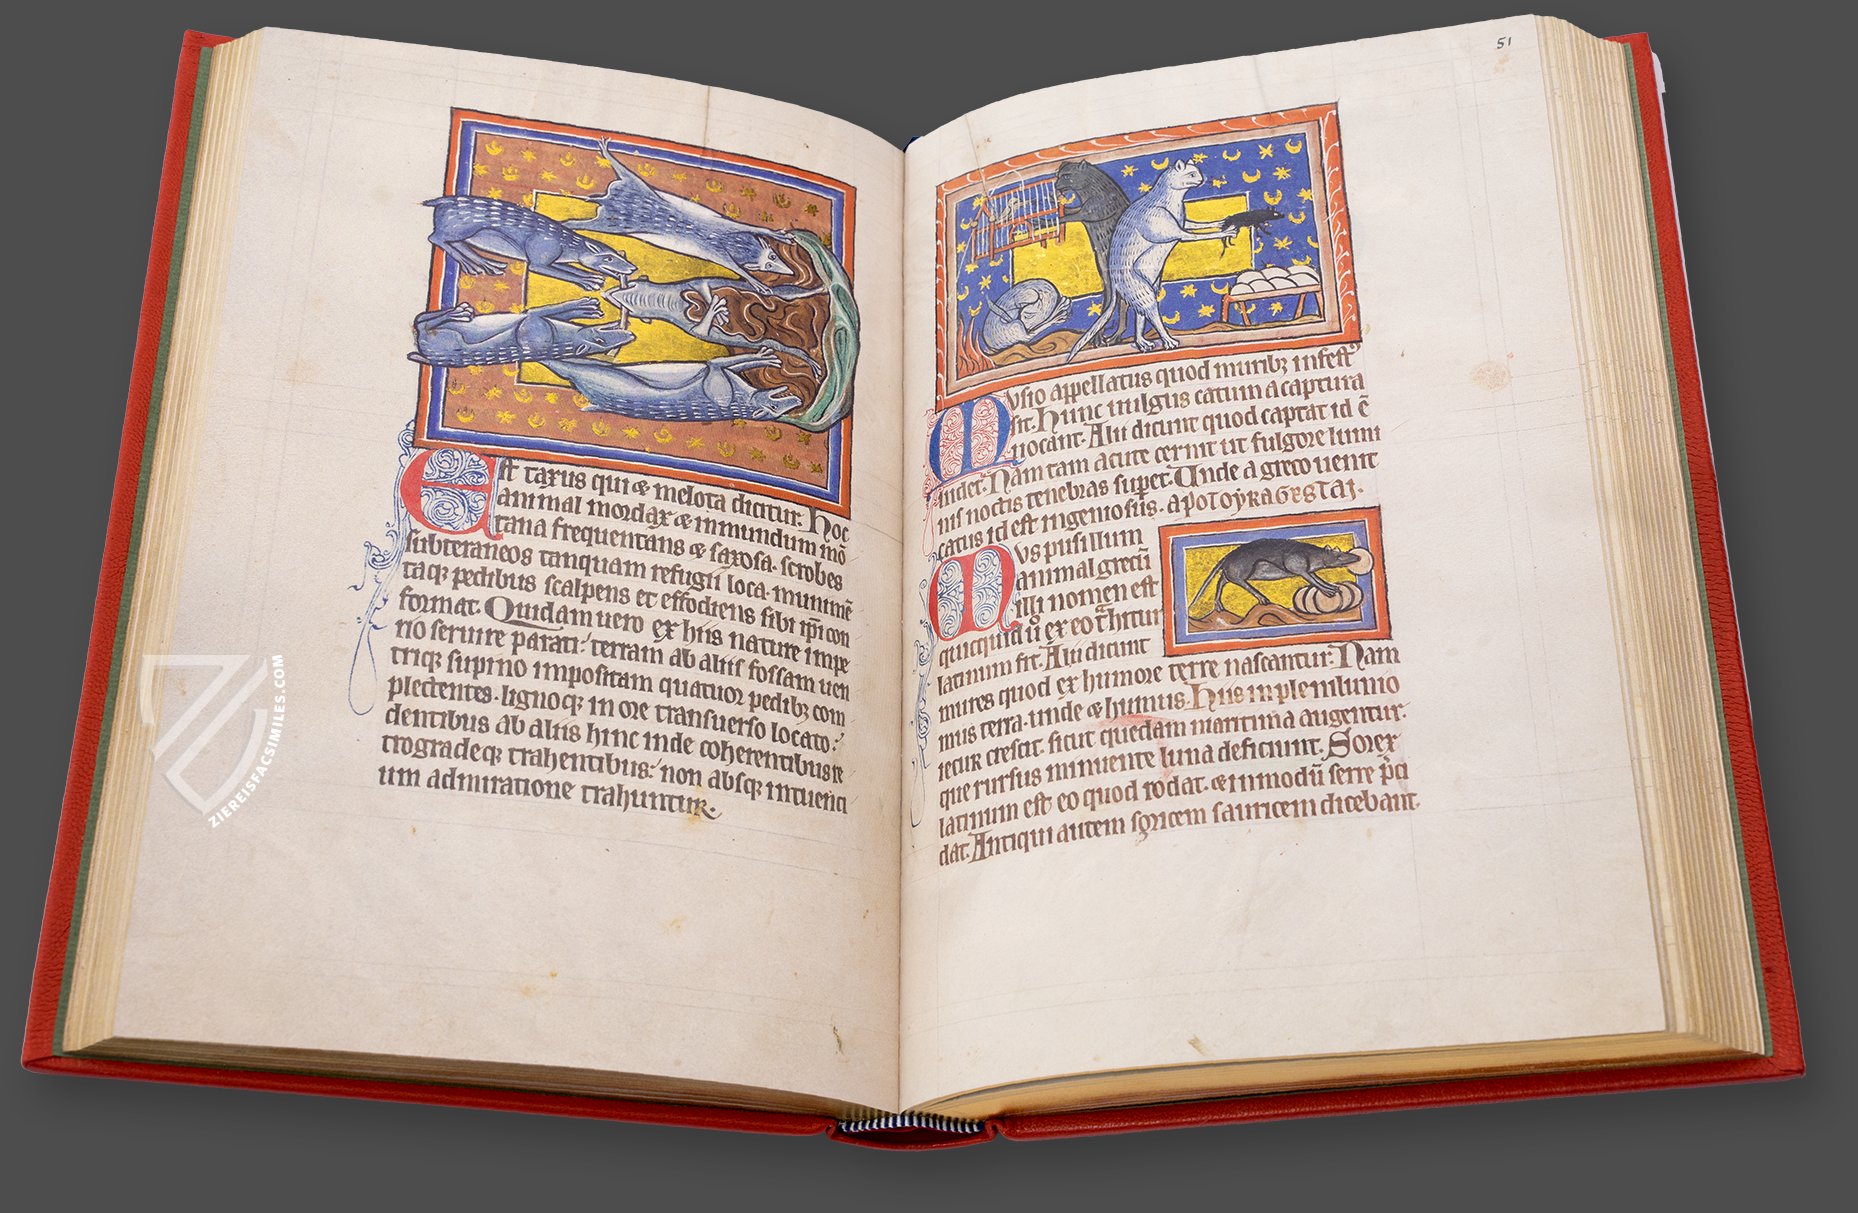 Est taxus qui & melota dicitur. hoc
animal mordax & inmundum mō
tana frequentans & saxosa. scrobes
subterraneos tanquam refugii loca. muniniē
taq; pedibus scalpens et effodiens sibi ip̄i con
format. Quidam uero ex hiis nature impe
rio seruire parati: terram ab aliis fossam uen
triq; supino impositam quatuor pedibz com
plectentes. lignoq; in ore transuerso locato:
dentibus ab aliis hinc inde coherentibus re
trogradeq; trahentibus: non absq; intuenci
um admiratione trahuntur.
51
Musio appellatus quod muribz infest᾽
sit. Hunc uulgus catum a captura
uocant. Alii dicunt quod captat id ē
uidet. Nam tam acute cernit ut fulgore lumi
nis noctis tenebras superet. Unde a greco uenit
catus id est ingeniosus. ΑΡΟΤΟΥΚΑGΕSΤΑΙ.
Mus pusillum
animal grecū
illi nomen est
quicquid u̓ ex eo thitur
latinum fit. Alii dicunt
mures quod ex humore terre nascantur. Nam
mus terra. unde & humus. hiis in plenilunio
iecur crescit. sicut quedam maritima augentur.
que rursus minuente luna deficiunt. Sorex
latinum est eo quod rodat. & inmodū serre p̄ci
dat. Antiqui autem soricem sauricem dicebant.
ZIEREISFACSIMILES.COM